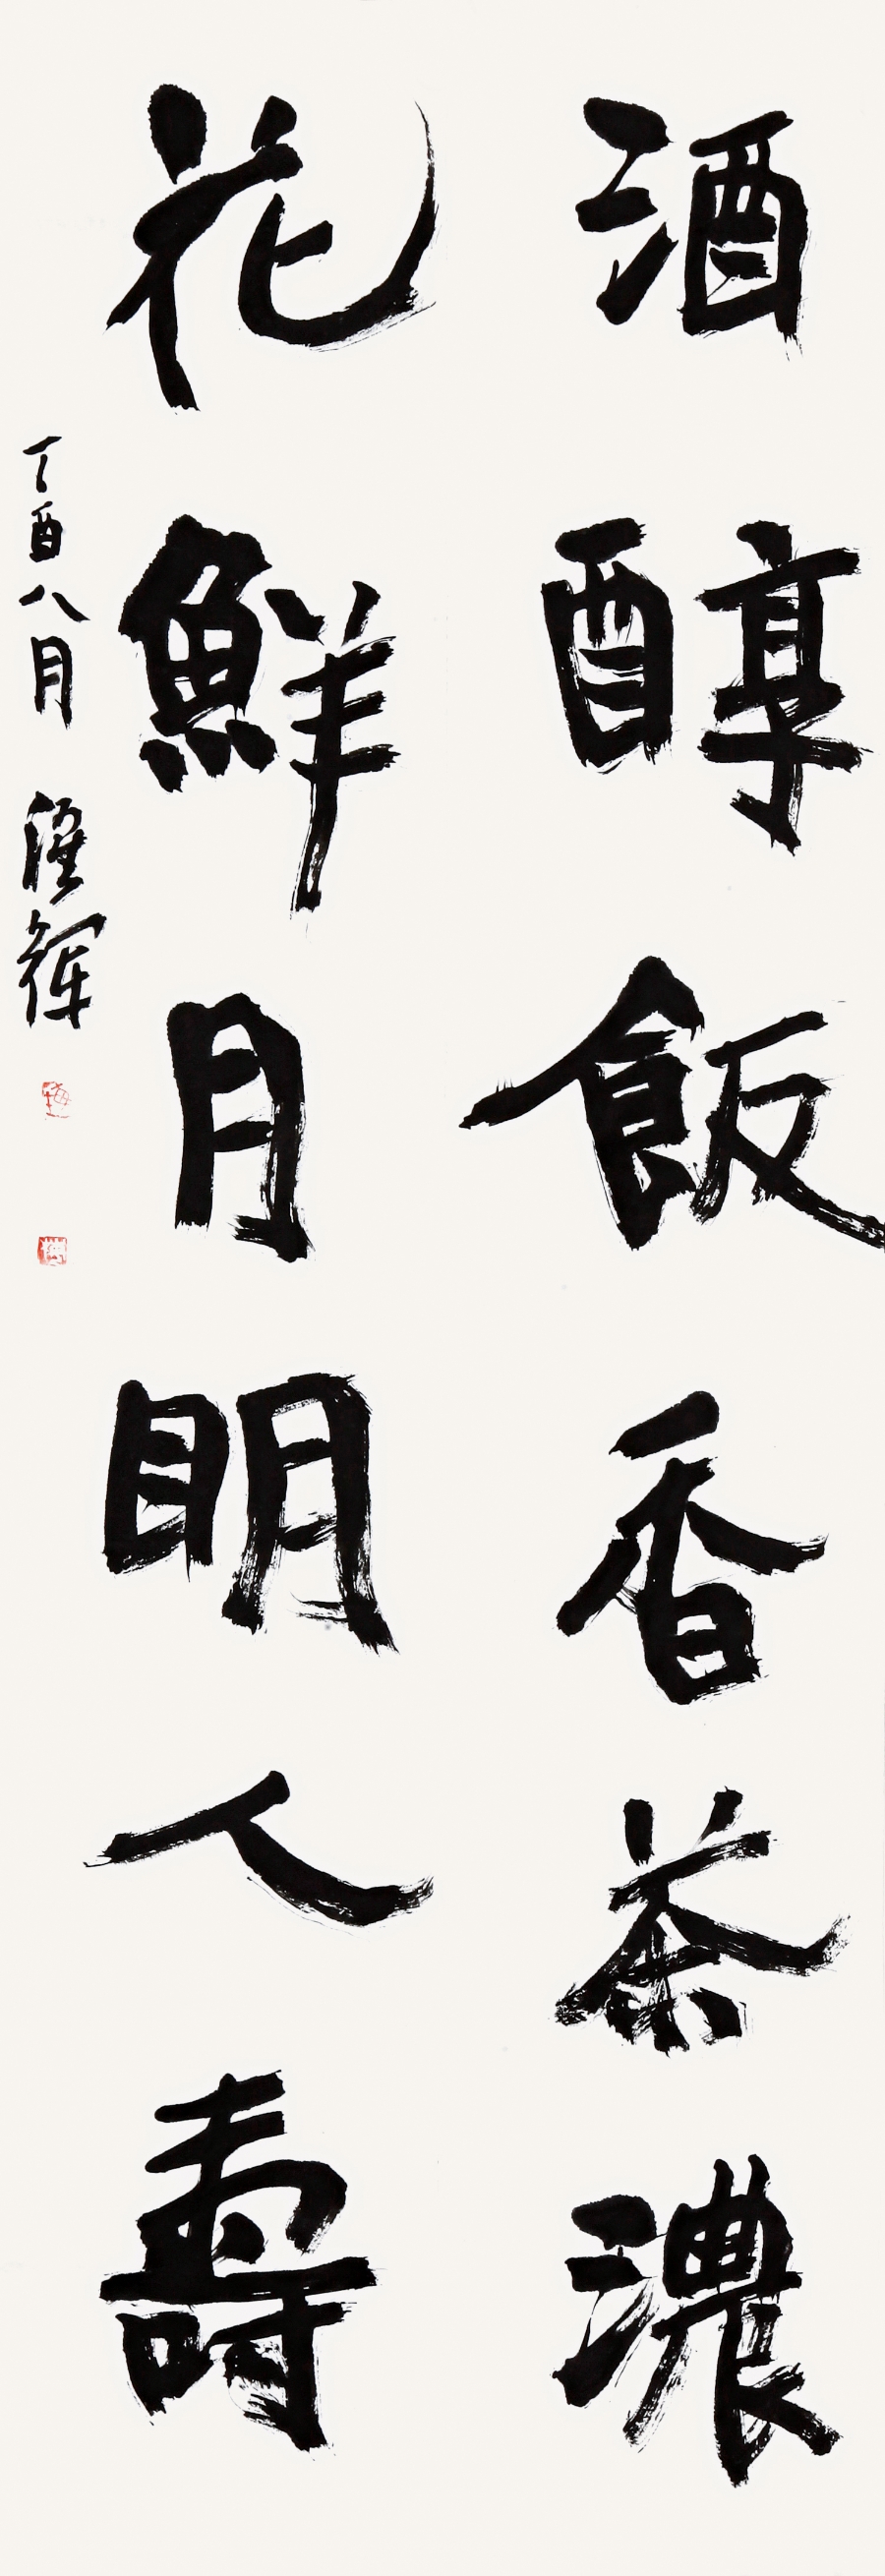 酒醇飯香茶濃
花鮮月明人壽
丁酉八月